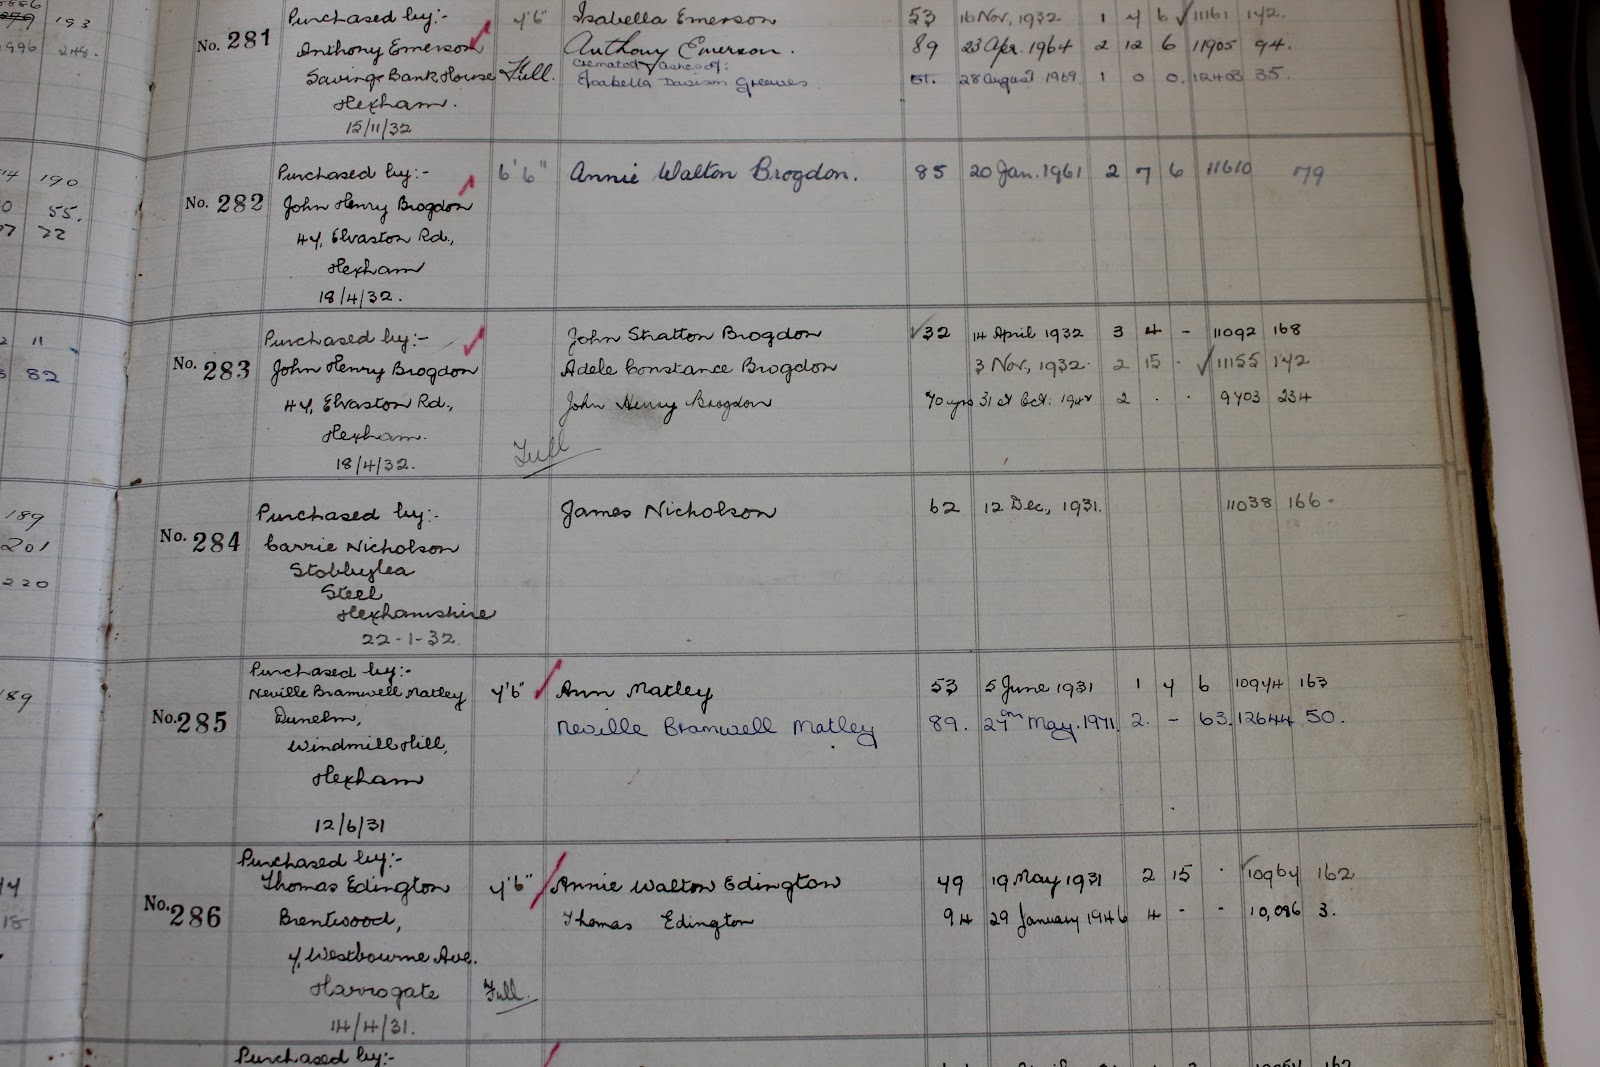 193
248.
No. 281
Purchased by:-
Anthony Emerson
Savings Bank House
Hexham.
15/11/32
4'6"
Full.
Isabella Emerson 53 16 Nov, 1932 1 4 6 11161 142.
Anthony Emerson. 89 23 Apr. 1964 2 12 6 11905 94.
Cremated Ashes of:
Isabella Davison Greaves 28 August 1969. 1 0 0. 12403 35.
190
55.
22
No. 282
Purchased by:-
John Henry Brogdon
44, Elvaston Rd.,
Hexham
18/4/32.
6'6" Annie Walton Brogdon. 85 20 Jan. 1961 2 7 6 11610 79
11
82
No. 283
Purchased by:-
John Henry Brogdon
44, Elvaston Rd.,
Hexham.
18/4/32.
Full
John Stratton Brogdon 32 14 April 1932 3 4 - 11092 168
Adele Constance Brogdon 3 Nov, 1932. 2 15 . 11155 142
John Henry Brogdon 70 yrs 31st Oct. 2 . . 9703 234
189
201
220
No. 284
Purchased by:-
Carrie Nicholson
Stobbylea
Steel
Hexhamshire
22-1-32.
James Nicholson 62 12 Dec, 1931. 11038 166-
No. 285
Purchased by:-
Neville Bramwell Matley
Dunelm,
Windmill Hill,
Hexham
12/6/31
4'6" Ann Matley 53 5 June 1931 1 4 6 10974 163
Neville Bramwell Matley 89. 27th May. 1971. 2. - 63. 12644 50.
No. 286
Purchased by:-
Thomas Edington
Brentwood,
4, Westbourne Ave.
Harrogate
14/4/31.
4'6"
Full.
Annie Walton Edington 49 19 May 1931 2 15 . 10964 162
Thomas Edington 94 29 January 1946 4 - - 10,086 3.
Purchased by:-